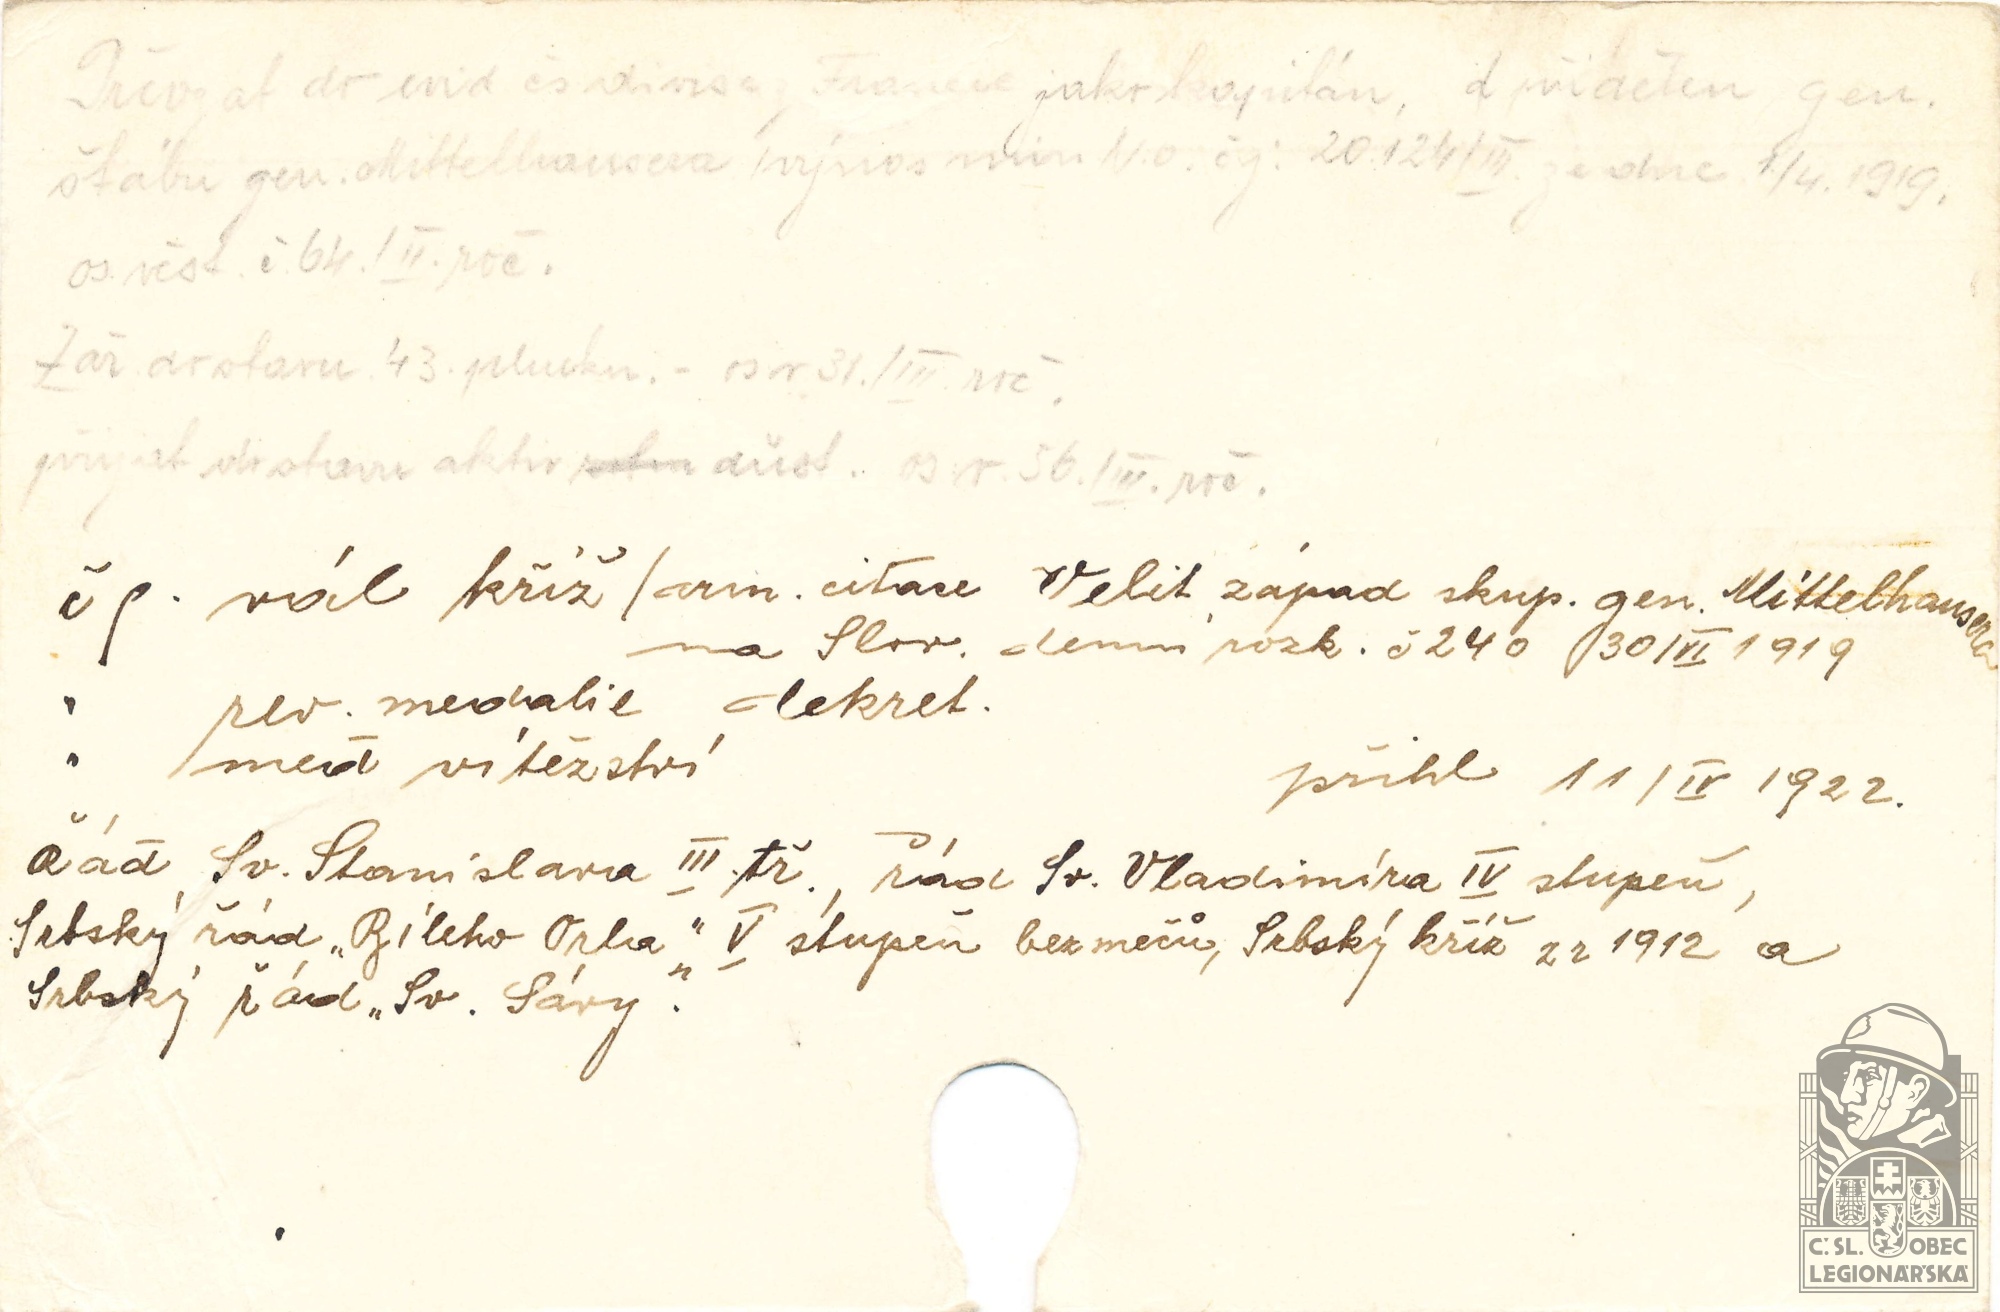 Převzat do evid čs divise z Francie jako kapitán, přidělen gen.
štábu gen. Mittelhausera výnos min N.O. čj: 20.124/III. ze dne 1/4. 1919.
os. věst. č. 64./II. roč.
Zař. do stavu 43. pluku. - os v 31./III. roč.
přijat do stavu aktiv důst. os v. 56./III. roč.
čs. vál kříž / arm. citace Velit. západ skup. gen. Mittelhausera
na Slov. denní rozk. č 240 30/VI 1919
" rev. medalie dekret.
" med vítězství přihl 11/IV 1922.
Řád Sv. Stanislava III. tř., řád Sv. Vladimíra IV stupeň,
Srbský řád „Bílého Orla" V stupeň bez mečů, Srbský kříž z r 1912 a
Srbský řád „Sv. Sávy".
Č.SL. OBEC
LEGIONÁŘSKÁ